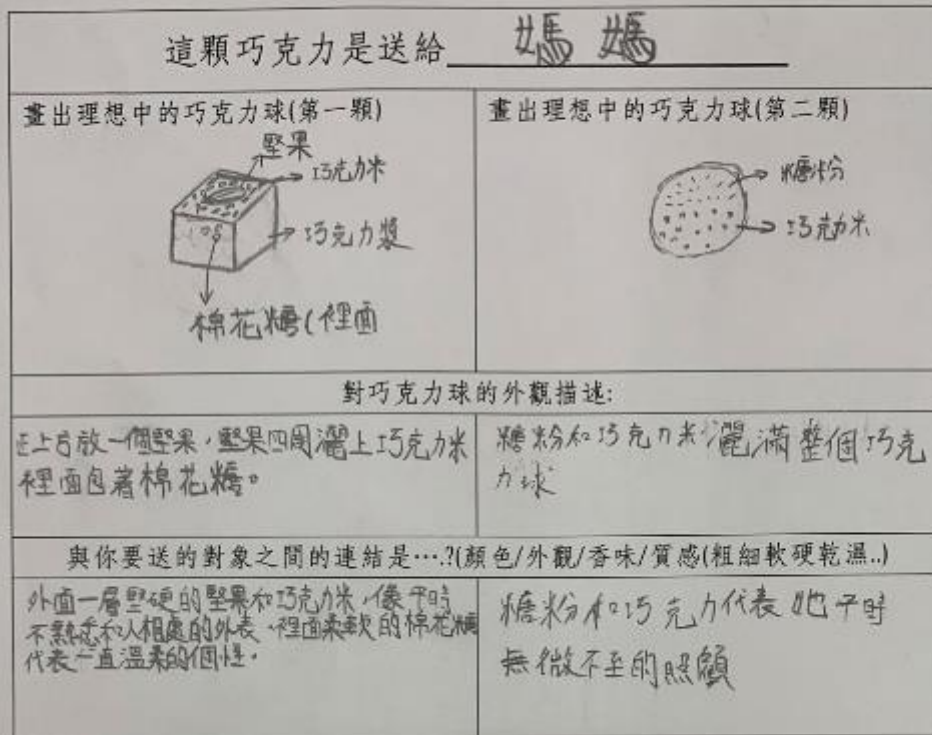 這顆巧克力是送給 媽媽
畫出理想中的巧克力球(第一顆)
堅果
巧克力米
巧克力漿
棉花糖(裡面
畫出理想中的巧克力球(第二顆)
糖粉
巧克力米
對巧克力球的外觀描述:
正上方放一個堅果,堅果四周灑上巧克力米
裡面包著棉花糖。
糖粉和巧克力米灑滿整個巧克
力球
與你要送的對象之間的連結是…?(顏色/外觀/香味/質感(粗細軟硬乾濕..)
外面一層堅硬的堅果和巧克力米,像平時
不熟悉和人相處的外表,裡面柔軟的棉花糖
代表一直溫柔的個性。
糖粉和巧克力代表她平時
無微不至的照顧